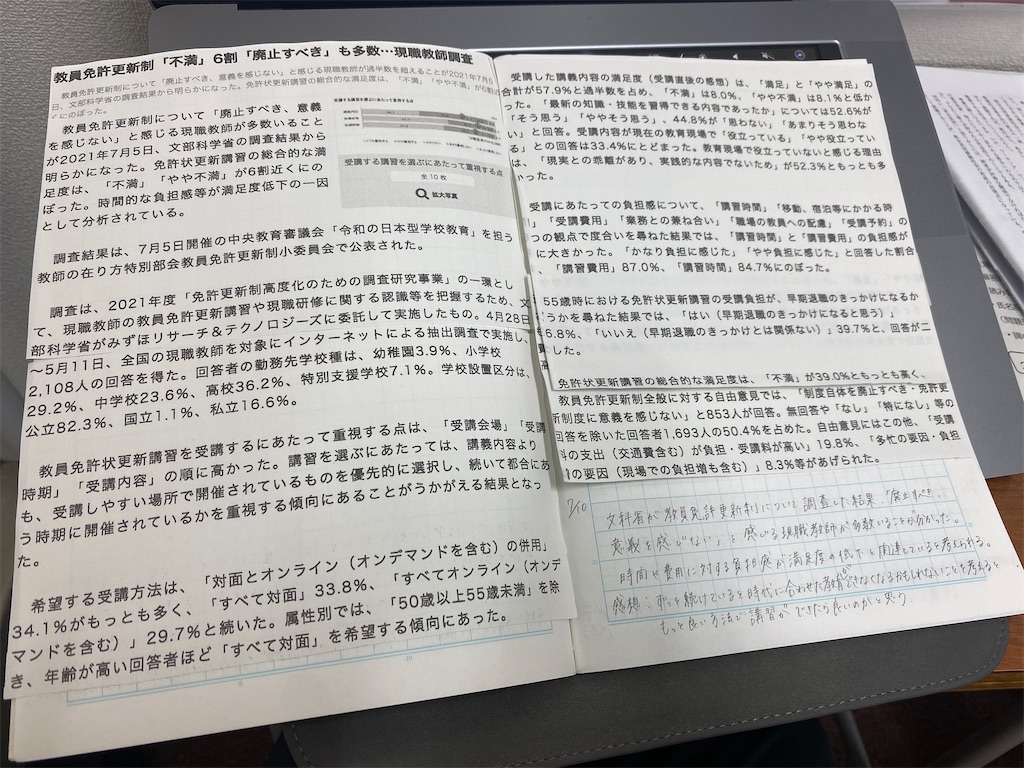 教員免許更新制「不満」6割「廃止すべき」も多数…現職教師調査
教員免許更新制について「廃止すべき、意義を感じない」と感じる現職教師が過半数を超えることが2021年7月5
日、文部科学省の調査結果から明らかになった。免許状更新講習の総合的な満足度は、「不満」「やや不満」が6割近
くにのぼった。
教員免許更新制について「廃止すべき、意義
を感じない」と感じる現職教師が多数いること
が2021年7月5日、文部科学省の調査結果から
明らかになった。免許状更新講習の総合的な満
足度は、「不満」「やや不満」が6割近くにの
ぼった。時間的な負担感等が満足度低下の一因
として分析されている。
受講する講習を選ぶにあたって重視する点
受講する講習を選ぶにあたって重視する点
全10枚
拡大写真
調査結果は、7月5日開催の中央教育審議会「令和の日本型学校教育」を担う
教師の在り方特別部会教員免許更新制小委員会で公表された。
調査は、2021年度「免許更新制高度化のための調査研究事業」の一環とし
て、現職教師の教員免許更新講習や現職研修に関する認識等を把握するため、文
部科学省がみずほリサーチ＆テクノロジーズに委託して実施したもの。4月28日
～5月11日、全国の現職教師を対象にインターネットによる抽出調査で実施し、
2,108人の回答を得た。回答者の勤務先学校種は、幼稚園3.9%、小学校
29.2%、中学校23.6%、高校36.2%、特別支援学校7.1%。学校設置区分は、
公立82.3%、国立1.1%、私立16.6%。
教員免許状更新講習を受講するにあたって重視する点は、「受講会場」「受講
時期」「受講内容」の順に高かった。講習を選ぶにあたっては、講義内容より
も、受講しやすい場所で開催されているものを優先的に選択し、続いて都合にあ
う時期に開催されているかを重視する傾向にあることがうかがえる結果となっ
た。
希望する受講方法は、「対面とオンライン（オンデマンドを含む）の併用」
34.1%がもっとも多く、「すべて対面」33.8%、「すべてオンライン（オンデ
マンドを含む）」29.7%と続いた。属性別では、「50歳以上55歳未満」を除
き、年齢が高い回答者ほど「すべて対面」を希望する傾向にあった。
受講した講義内容の満足度（受講直後の感想）は、「満足」と「やや満足」の
合計が57.9%と過半数を占め、「不満」は8.0%、「やや不満」は8.1%と低か
った。「最新の知識・技能を習得できる内容であったか」については52.6%が
「そう思う」「ややそう思う」、44.8%が「思わない」「あまりそう思わな
い」と回答。受講内容が現在の教育現場で「役立っている」「やや役立ってい
る」との回答は33.4%にとどまった。教育現場で役立っていないと感じる理由
は、「現実との乖離があり、実践的な内容でないため」が52.3%ともっとも多
かった。
受講にあたっての負担感について、「講習時間」「移動、宿泊等にかかる時
」「受講費用」「業務との兼ね合い」「職場の教員への配慮」「受講予約」の
つの観点で度合いを尋ねた結果では、「講習時間」と「講習費用」の負担感が
に大きかった。「かなり負担に感じた」「やや負担に感じた」と回答した割合
、「講習費用」87.0%、「講習時間」84.7%にのぼった。
55歳時における免許状更新講習の受講負担が、早期退職のきっかけになるか
どうかを尋ねた結果では、「はい（早期退職のきっかけになると思う）」
6.8%、「いいえ（早期退職のきっかけとは関係ない）」39.7%と、回答が二
した。
免許状更新講習の総合的な満足度は、「不満」が39.0%ともっとも高く、
免許更新制全般に対する自由意見では、「制度自体を廃止すべき・免許更
新制度に意義を感じない」と853人が回答。無回答や「なし」「特になし」等の
回答を除いた回答者1,693人の50.4%を占めた。自由意見にはこの他、「受講
料の支出（交通費含む）が負担・受講料が高い」19.8%、「多忙の要因・負担
の要因（現場での負担増も含む）」8.3%等があげられた。
7/10
文科省が教員免許更新制について調査した結果「廃止すべき、
意義を感じない」と感じる現職教師が多数いることが分かった。
時間や費用に対する負担感が満足度の低下と関連していると考えられる。
感想：ずっと続けていると時代に合わせた教育ができなくなるかもしれないことを考えると
もっと良い方法で講習ができたら良いのかと思う。